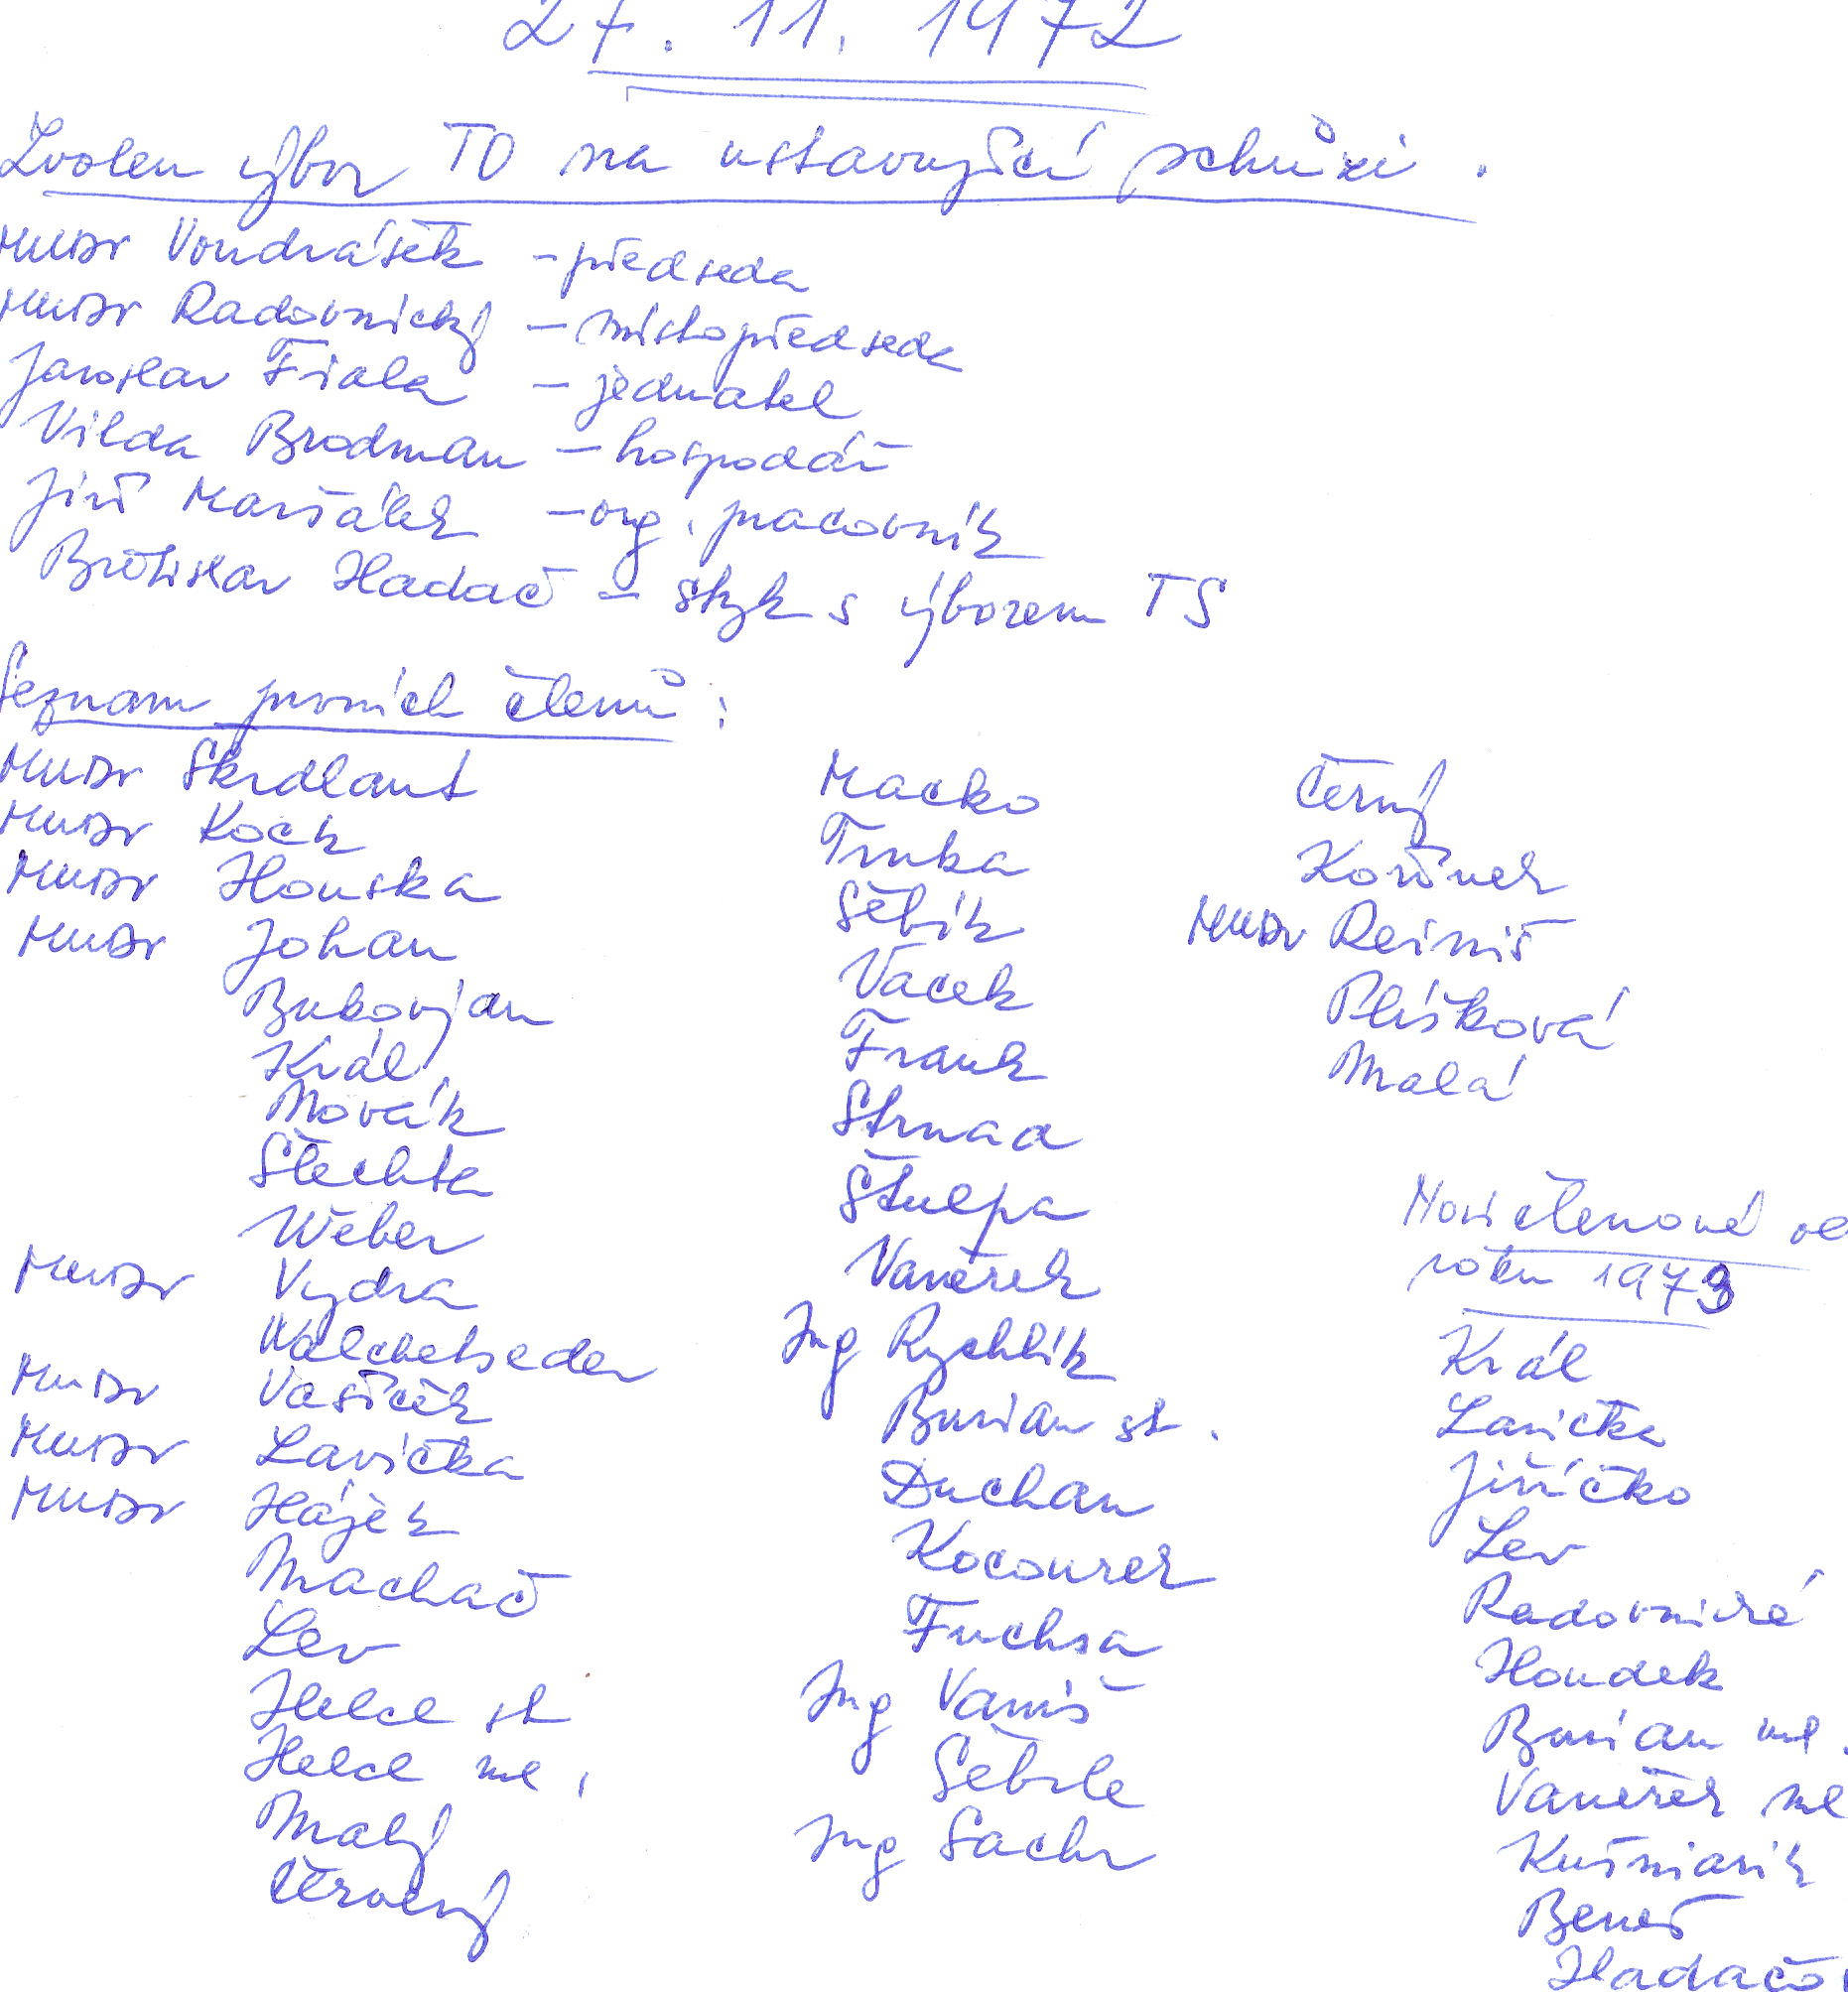 27. 11. 1972
Zvolen výbor TO na ustavující schůzi.
MUDr Vondrášek - předseda
MUDr Radovnický - místopředseda
Jaroslav Fiala - jednatel
Vilda Brodman - hospodář
Jiří Maršálek - org. pracovník
Břetislav Hadač - styk s výborem TS
Seznam prvních členů:
MUDr Škrdlant
MUDr Koch
MUDr Houska
MUDr Johan
Bukovjan
Král
Novák
Šlechta
Weber
MUDr Vydra
MUDr Vašíček
MUDr Lavička
MUDr Hájek
Machač
Lev
Helcl st
Helcl ml.
Malý
Červený
Macko
Trnka
Sěbík
Vacek
Frank
Strnad
Štulpa
Vaněrek
Ing Rychlík
Burian st.
Duchan
Kocourek
Fuchsa
Ing Vaniš
Šebrle
Ing Sachr
Černý
Kořínek
MUDr Reiniš
Plíšková
Malá
Noví členové
roku 1973
Král
Lavička
Jiříčko
Lev
Radovnická
Houdek
Burian ml.
Vaněrek ml
Kušniarik
Beneš